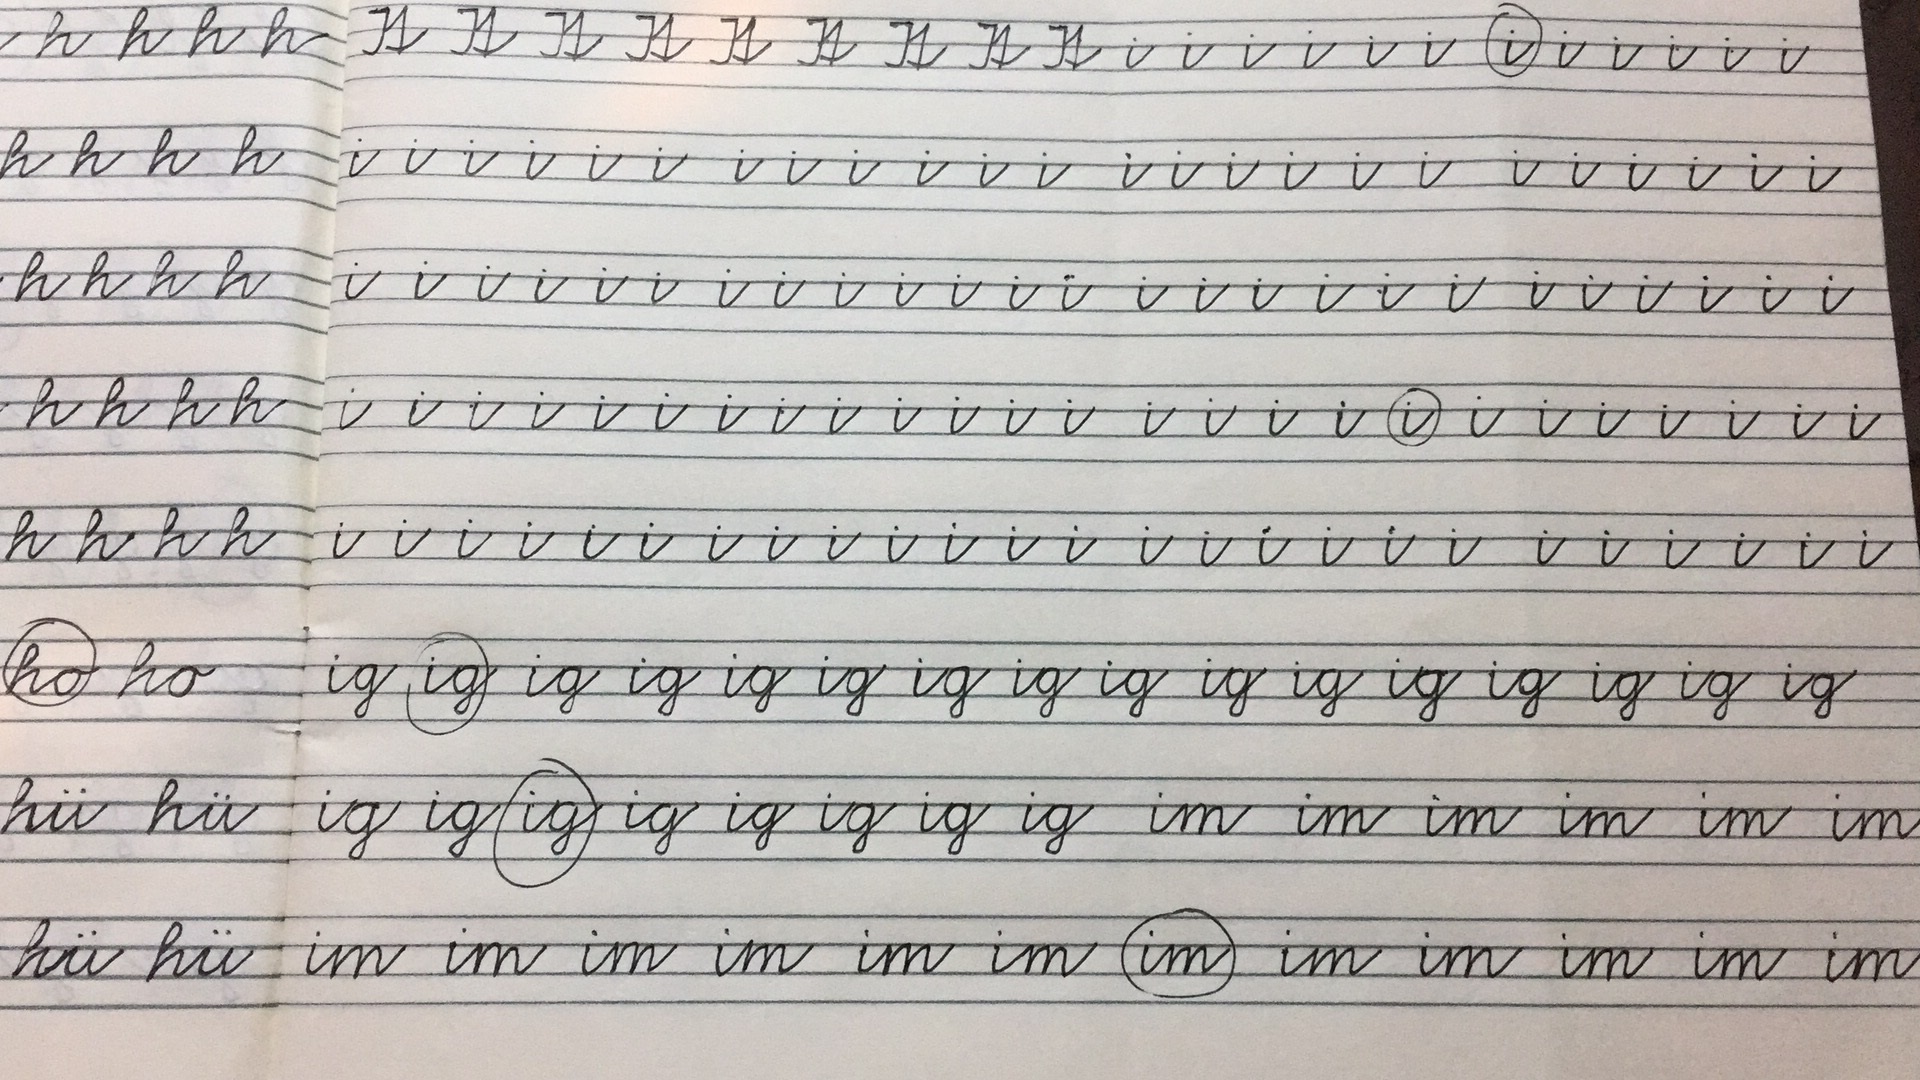 h h h h H H H H H H H H H i i i i i i i i i i i i
h h h h i i i i i i i i i i i i i i i i i i i i i i i i
h h h h i i i i i i i i i i i i i i i i i i i i i i i i i
h h h h i i i i i i i i i i i i i i i i i i i i i i i i i
h h h h i i i i i i i i i i i i i i i i i i i i i i i i i
ho ho ig ig ig ig ig ig ig ig ig ig ig ig ig ig ig ig
hü hü ig ig ig ig ig ig ig ig im im im im im im
hü hü im im im im im im im im im im im im